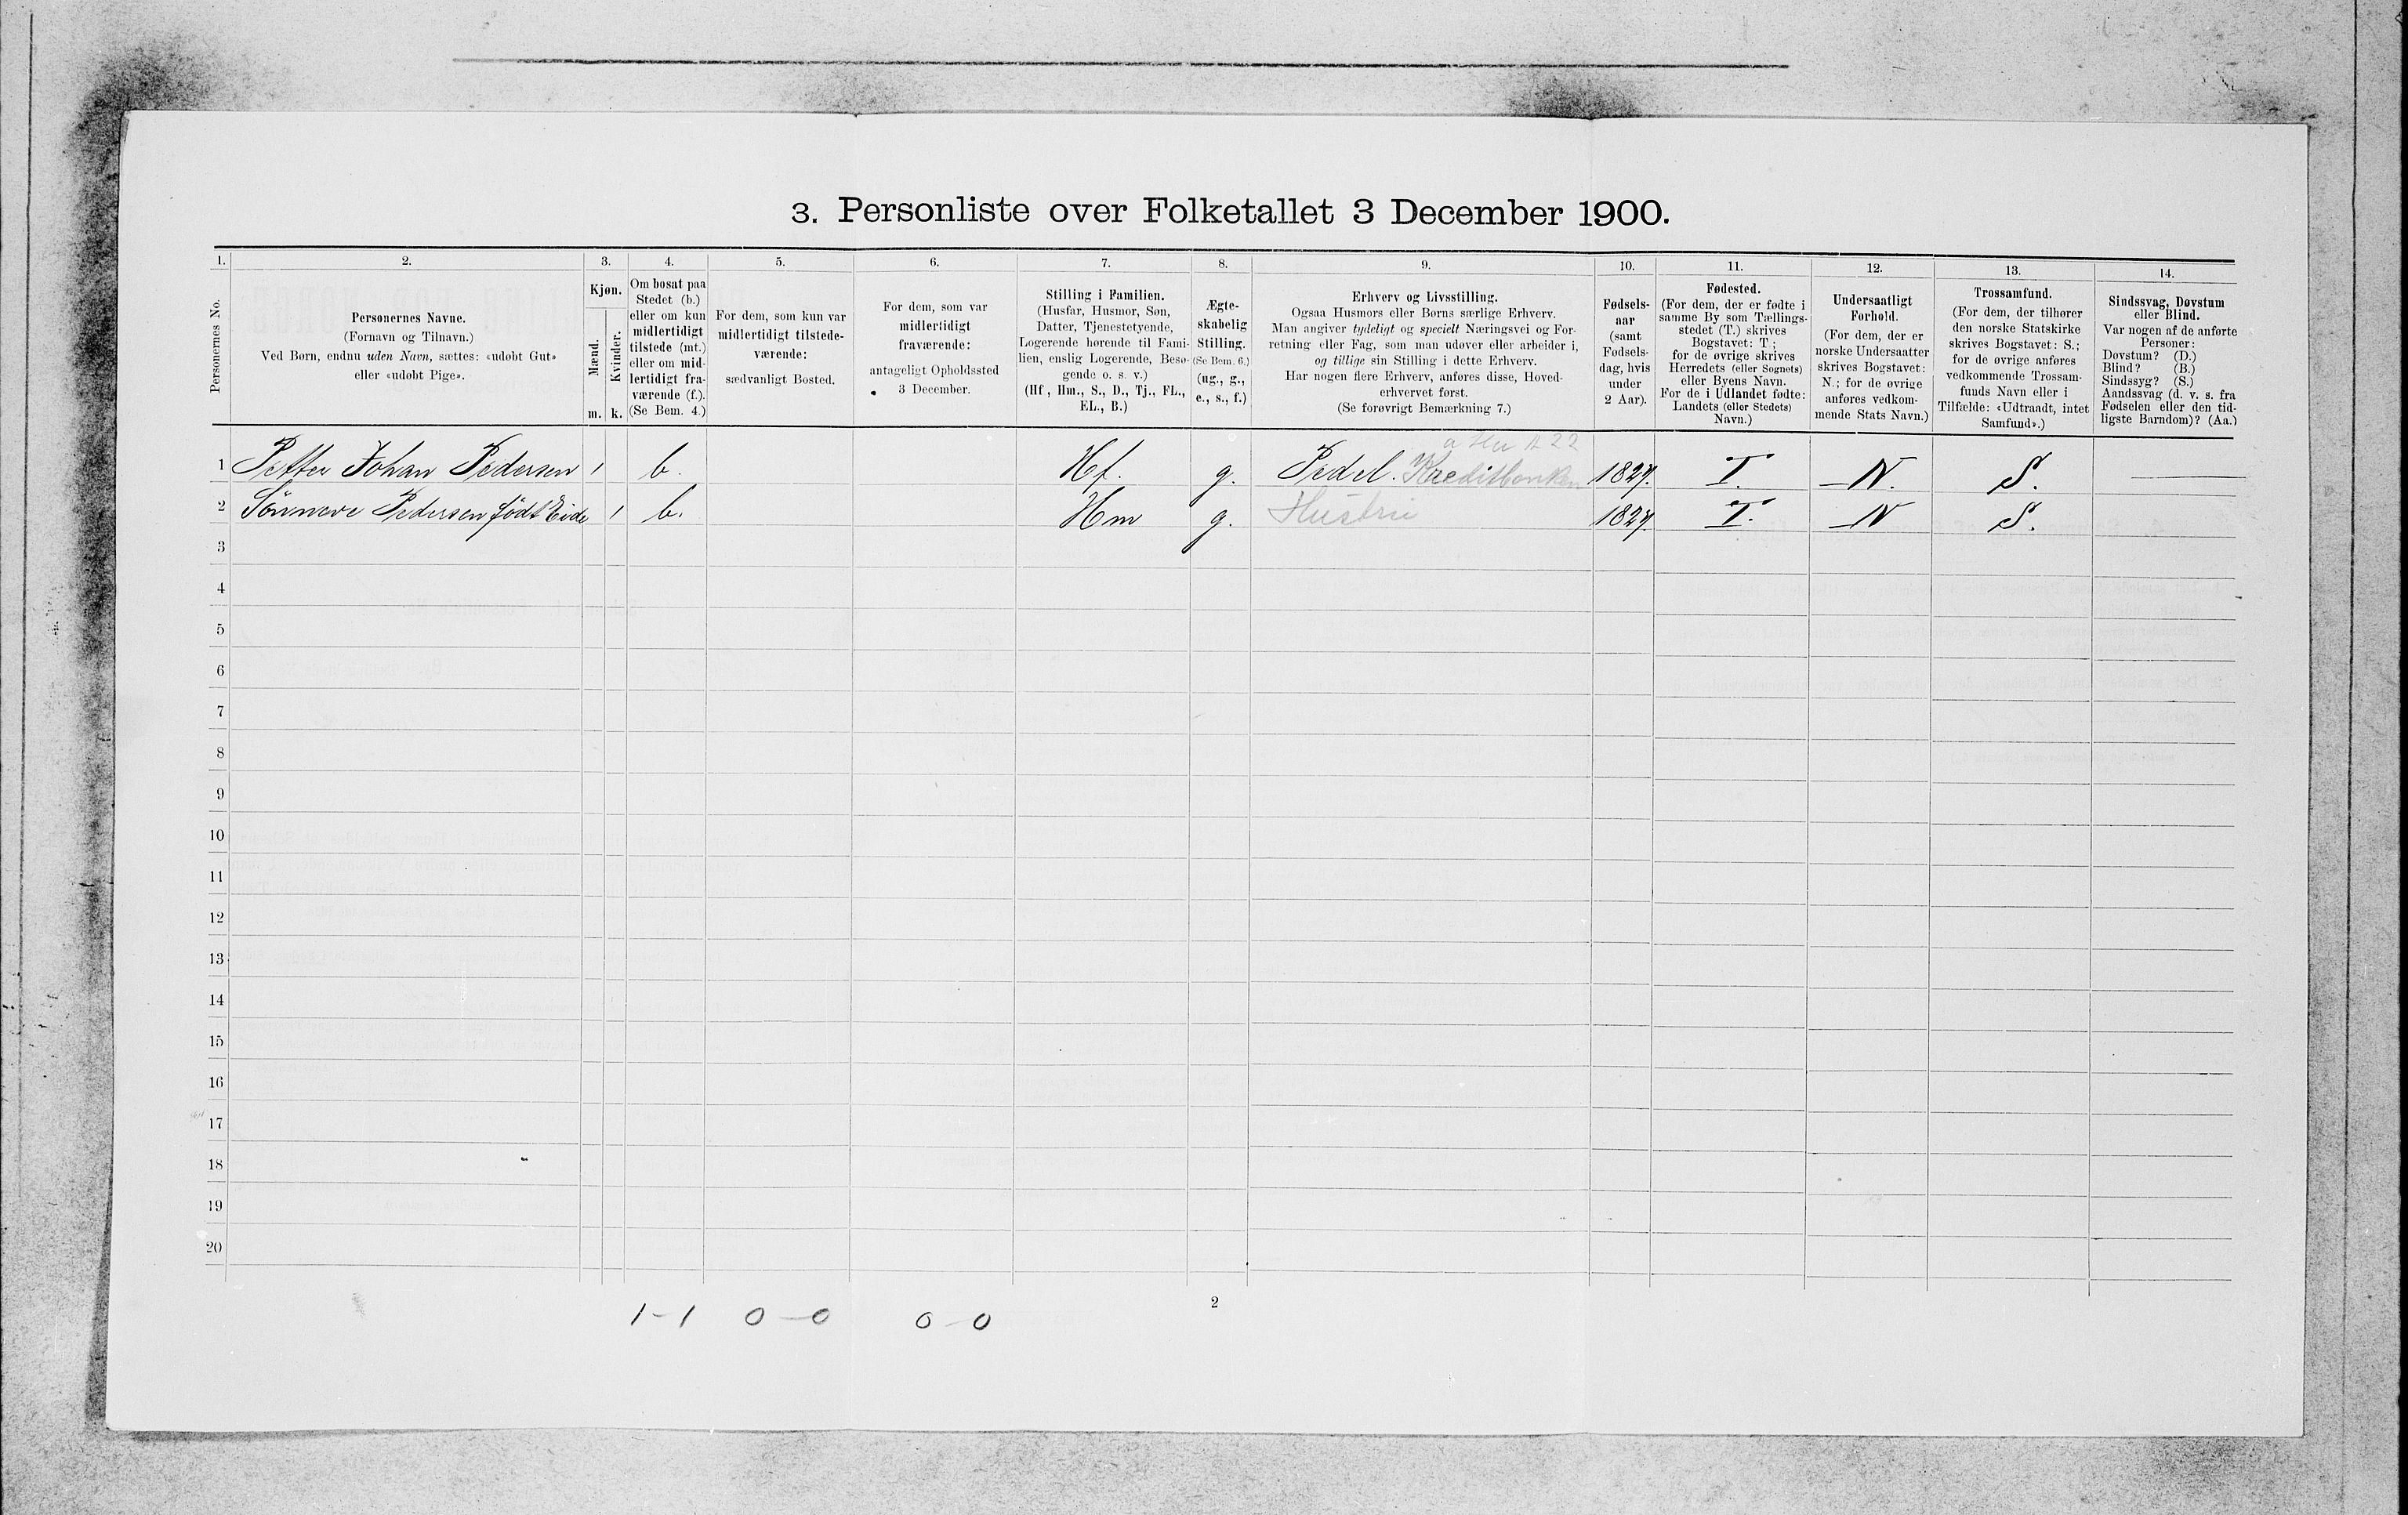 3. Personliste over Folketallet 3 December 1900.
1. 2. 3. 4. 5. 6. 7. 8. 9. 10. 11. 12. 13. 14.
Personernes No.
Personernes Navne.
(Fornavn og Tilnavn.)
Ved Børn, endnu uden Navn, sættes: «udøbt Gut»
eller «udøbt Pige».
Kjøn.
Mænd.
Kvinder.
m. k.
Om bosat paa
Stedet (b.)
eller om kun
midlertidigt
tilstede (mt.)
eller om mid-
lertidigt fra-
værende (f.).
(Se Bem. 4.)
For dem, som kun var
midlertidigt tilstede-
værende:
sædvanligt Bosted.
For dem, som var
midlertidigt
fraværende:
antageligt Opholdssted
3 December.
Stilling i Familien.
(Husfar, Husmor, Søn,
Datter, Tjenestetyende,
Logerende hørende til Fami-
lien, enslig Logerende, Besø-
gende o. s. v.)
(Hf., Hm., S., D., Tj., FL.,
EL., B.)
Ægte-
skabelig
Stilling.
(Se Bem. 6.)
(ug., g.,
e., s., f.)
Erhverv og Livsstilling.
Ogsaa Husmors eller Børns særlige Erhverv.
Man angiver tydeligt og specielt Næringsvei og For-
retning eller Fag, som man udøver eller arbeider i,
og tillige sin Stilling i dette Erhverv.
Har nogen flere Erhverv, anføres disse, Hoved-
erhvervet først.
(Se forøvrigt Bemærkning 7.)
Fødsels-
aar
(samt
Fødsels-
dag, hvis
under
2 Aar).
Fødested.
(For dem, der er fødte i
samme By som Tællings-
stedet (T.) skrives
Bogstavet: T.;
for de øvrige skrives
Herredets (eller Sognets)
eller Byens Navn.
For de i Udlandet fødte:
Landets (eller Stedets)
Navn.)
Undersaatligt
Forhold.
(For dem, der er
norske Undersaatter
skrives Bogstavet:
N.; for de øvrige
anføres vedkom-
mende Stats Navn.)
Trossamfund.
(For dem, der tilhører
den norske Statskirke
skrives Bogstavet: S.;
for de øvrige anføres
vedkommende Trossam-
funds Navn eller i
Tilfælde: «Udtraadt, intet
Samfund».)
Sindssvag, Døvstum
eller Blind.
Var nogen af de anførte
Personer:
Døvstum? (D.)
Blind? (B.)
Sindssyg? (S.)
Aandssvag (d. v. s. fra
Fødselen eller den tid-
ligste Barndom)? (Aa.)
1 Petter Johan Pedersen 1 b. Hf. g. Pedel. Kreditbanken 1827. T. N. S.
2 Sönneve Pedersen født Eide 1 b. Hm g. Hustru 1827. T. N S.
3
4
5
6
7
8
9
10
11
12
13
14
15
16
17
18
19
20
1-1 0-0 0-0
2